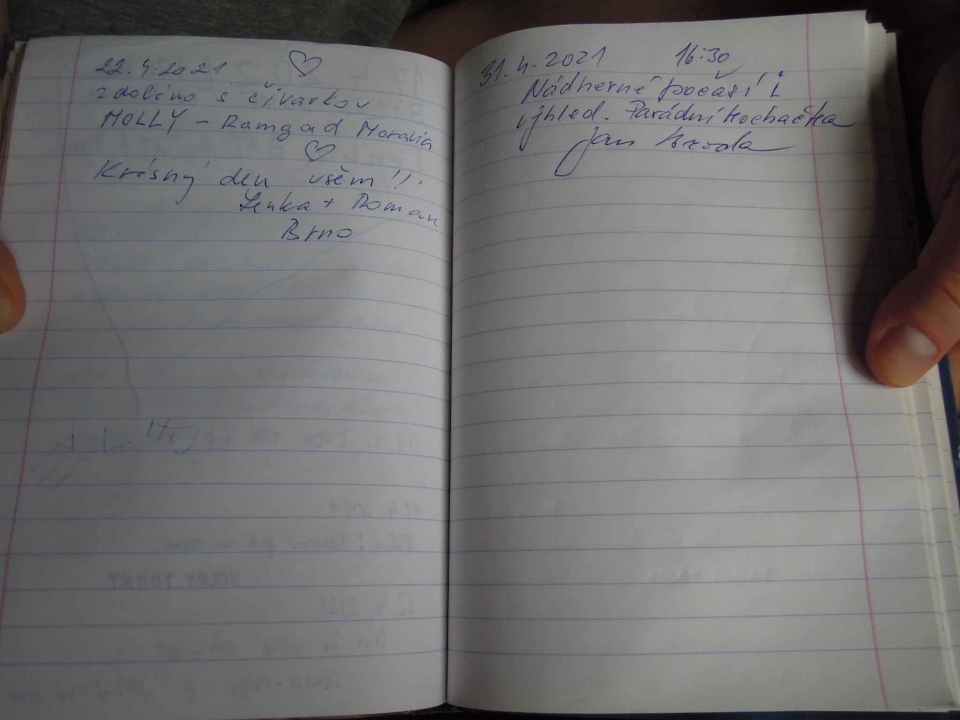 22.4.2021
zdoláno s čivavkou
MOLLY – Ramgad Moravia
Krásný den všem!!
Lenka + Roman
Brno
31.4.2021 16:30
Nádherné počasí i
výhled. Parádní kochačka
Jan